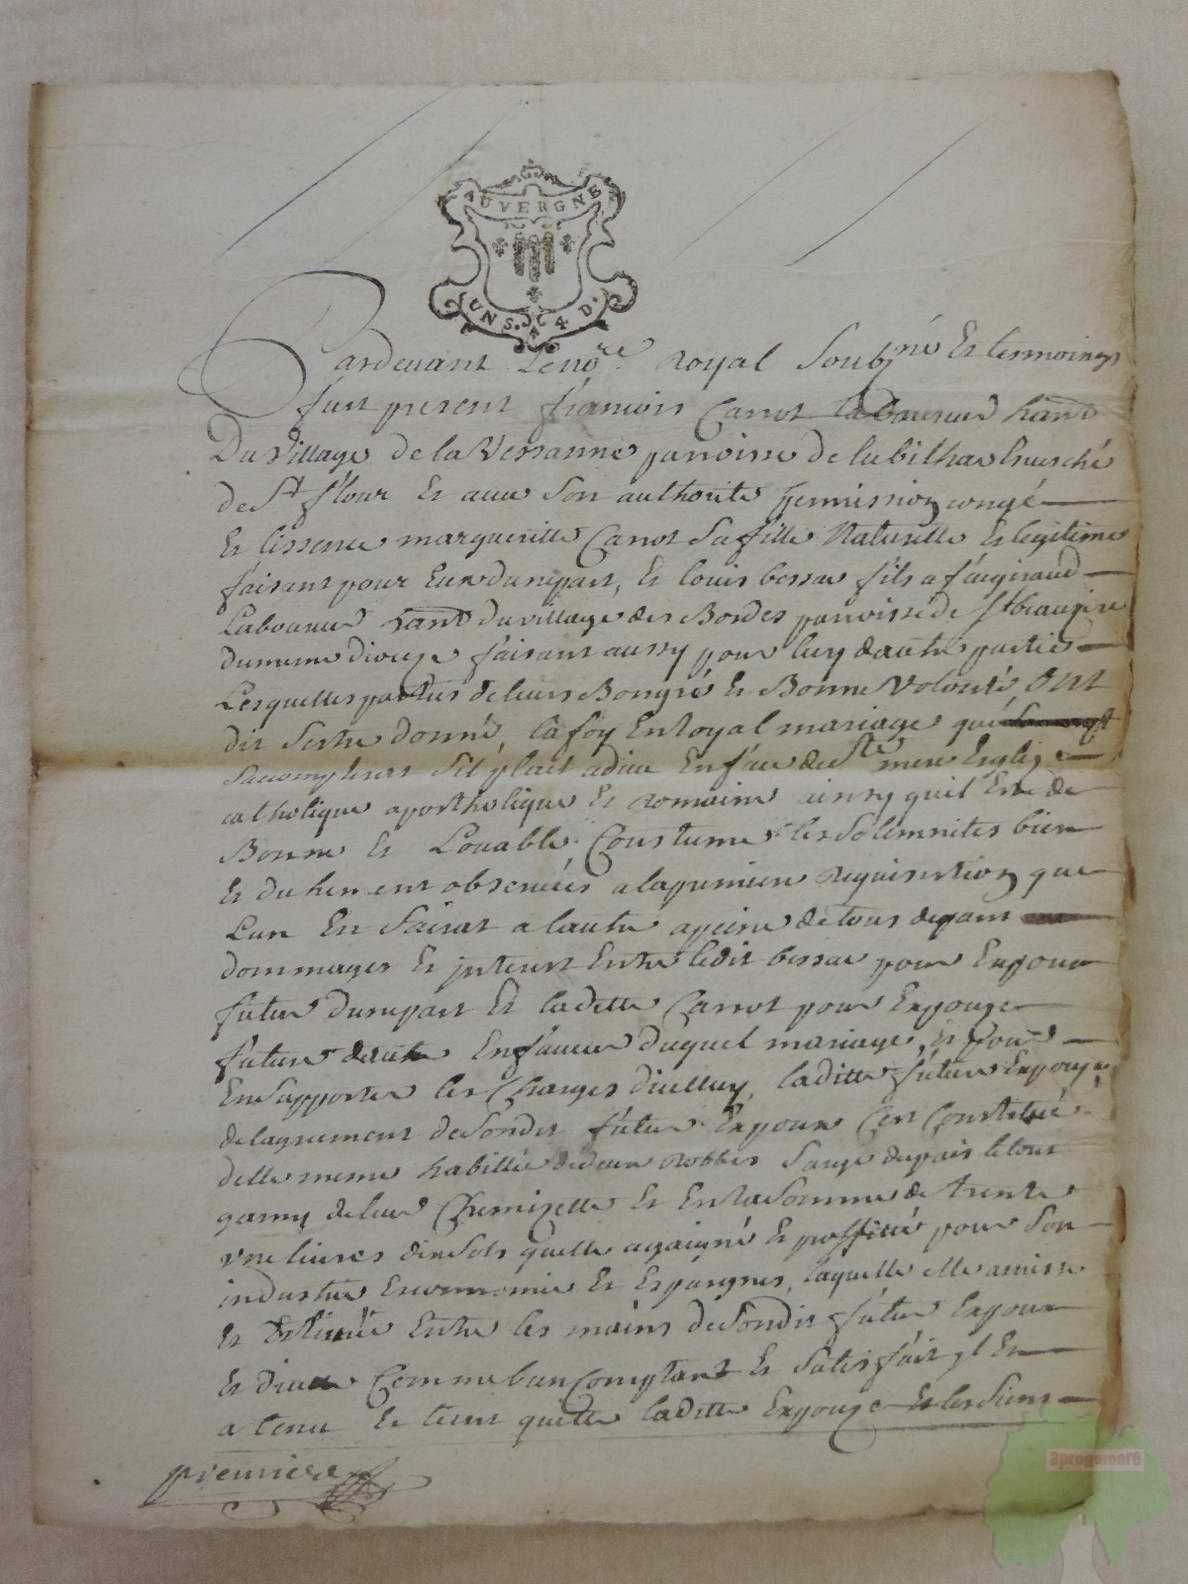 AUVERGNE
UN S. 4 D.
Pardevant Le no.re Royal Soub.né Et tesmoings
fust present françois Carrot Laboureur hant
Du Village de la Vessanne parroisse de
de St flour Et avec Son authorité permission congé
Et lissence margueritte Carrot Sa fille Naturelle Et legitime
faisant pour Eux dunepart, Et louis bessae fils a feu giraud
Laboureur hant Du village des Bordes parroisse de St beauzire
dumeme dioceze faisant aussy pour luy dautre parties
Lesquelles parties de leurs Bongré Et Bonne Volonté, Ont
dit Sestre donné, la foy En loyal mariage que
Saccompliront Sil plait a dieu En face de Ste mere Esglize
catholique apostholique Et Romaine ainsy quil Est de
Bonne Et Louable Coustume les Solemnites bien
Et duhement observées a la premiere Requisition que
Lun En faira a lautre a peine de tous depant
dommages Et interest Entre ledit bessae pour Expoux
futur dunepart Et laditte Carrot pour Expouze
future dautre En faveur duquel mariage, Et pour
En Supporter les Charges dicelluy, laditte future Expouze
de lagrement de Sondit futur Expoux Cest Constitué
delle meme habillée de deux Robbes Sarge dupais le tout
garny de leur Chemizette Et En la Somme de trente
une livres dix Sols quelle a gaigné Et proffitté pour Son
industrie Economie Et Espargnes, laquelle elle a
Et Entre les mains de Sondit futur Expoux
Et Comme bien Comptant Et Satisfait, il En
a tenu Et tient quitte laditte Expouze Et les Siens
premiere
aprogemere